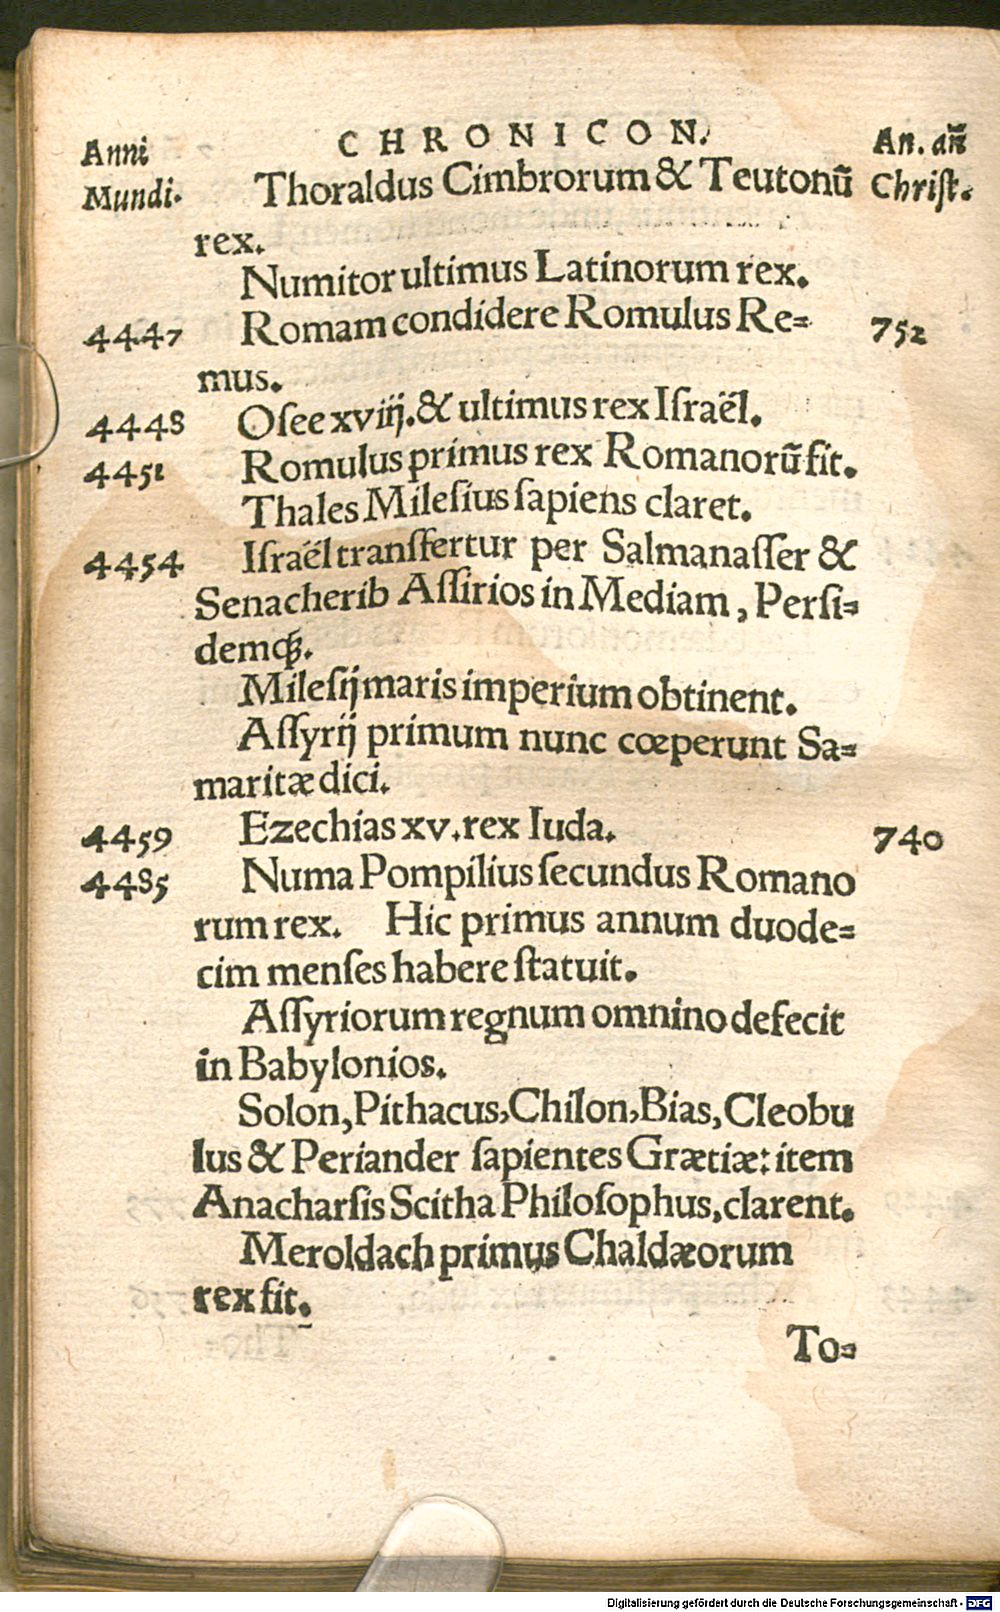 CHRONICON.
Anni An. añ
Mundi. Thoraldus Cimbrorum & Teutonũ Chriſt.
rex.
Numitor ultimus Latinorum rex.
4447 Romam condidere Romulus Re= 752
mus.
4448 Oſee xviij. & ultimus rex Iſraël.
4451 Romulus primus rex Romanorũ fit.
Thales Mileſius ſapiens claret.
4454 Iſraël transfertur per Salmanaſſer &
Senacherib Aſſirios in Mediam, Perſi=
demq́ꝫ.
Mileſij maris imperium obtinent.
Aſſyrij primum nunc cœperunt Sa=
maritæ dici.
4459 Ezechias xv. rex Iuda. 740
4485 Numa Pompilius ſecundus Romano
rum rex. Hic primus annum duode=
cim menſes habere ſtatuit.
Aſſyriorum regnum omnino defecit
in Babylonios.
Solon, Pithacus, Chilon, Bias, Cleobu
lus & Periander ſapientes Grætiæ: item
Anacharſis Scitha Philoſophus, clarent.
Meroldach primus Chaldæorum
rex fit.
To=
Digitalisierung gefördert durch die Deutsche Forschungsgemeinschaft - DFG